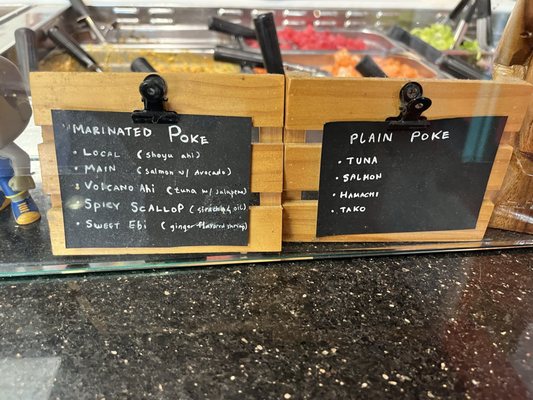 MARINATED POKE
• LOCAL (shoyu ahi)
• MAIN (salmon w/ Avocado)
• VOLCANO Ahi (tuna w/ Jalapeno)
• SPICY SCALLOP (sriracha & oil)
• SWEET EBI (ginger flavored shrimp)
PLAIN POKE
• TUNA
• SALMON
• HAMACHI
• TAKO